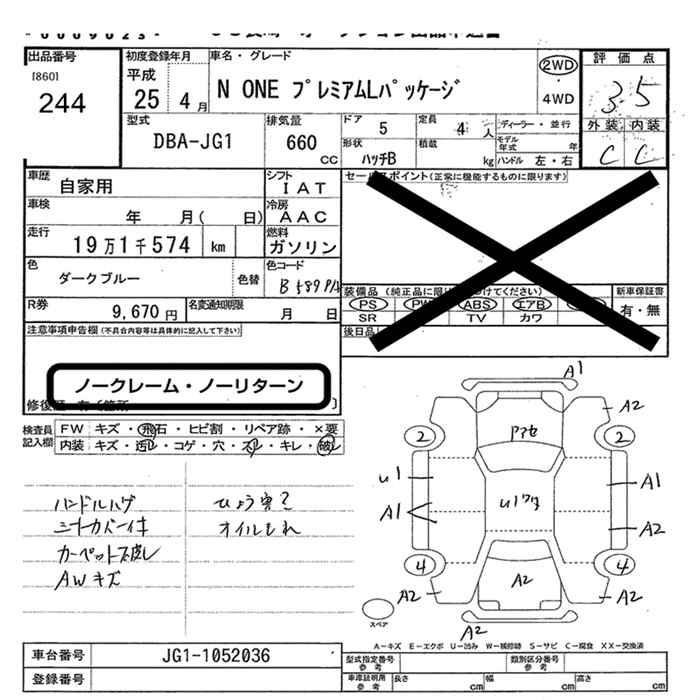 出品番号
[860]
244
初度登録年月
平成
25 4 月
車名・グレード
N ONE プレミアムLパッケージ
2WD
・
4WD
評価点
3.5
外装 内装
C C
型式
DBA-JG1
排気量
660
cc
ドア 5
定員 4 人
ディーラー・並行
モデル年式 年
形状
ハッチB
積載 kg
ハンドル 左・右
車歴
自家用
シフト
IAT
セールスポイント(正常に機能するものに限ります)
車検 年 月( 日)
冷房
AAC
走行
19万1千574 km
燃料
ガソリン
色
ダークブルー
色替
色コード
B589P/
装備品
PS PW ABS エアB
SR TV カワ
新車保証書
有・無
R券
9,670 円
名変通知期限
月 日
後日品
注意事項申告欄(不具合内容等は具体的に記入して下さい)
ノークレーム・ノーリターン
検査員記入欄
FW キズ・飛石・ヒビ割・リペア跡・×要
内装 キズ・汚レ・コゲ・穴・スレ・キレ・破レ
ハンドルハゲ
ひょう害?
ミラーカバーイキ
オイルもれ
カーペット欠皮し
AWキズ
A1
A2
2 アアセ 2
U1 A1
A1 U1ワタ
A2
4 4
A2 A2 A2
スペア
A2
A-キズ E-エクボ U-凹み W-補修跡 S-サビ C-腐食 XX-交換済
車台番号 JG1-1052036
型式指定番号 参考
類別区分番号 参考
登録番号
車庫証明用 参考
長さ cm
幅 cm
高さ cm